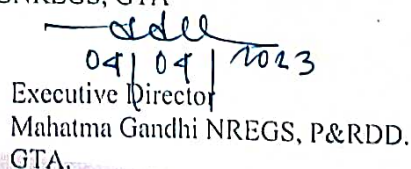 NREGS, GTA
04/04/2023
Executive Director
Mahatma Gandhi NREGS, P&RDD.
GTA.